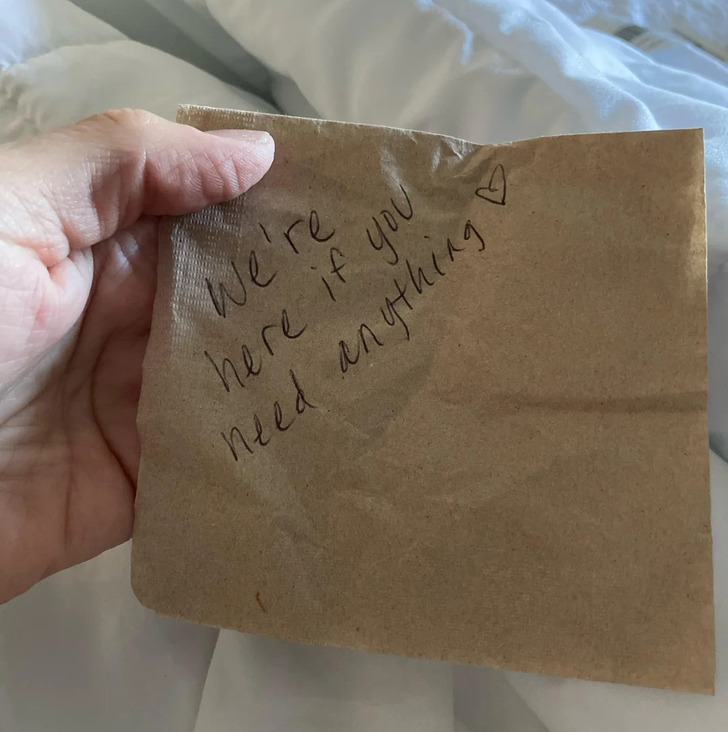 We're
here if you
need anything ♡